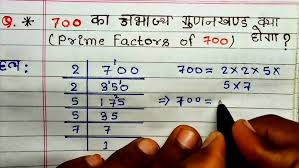 Q.* 700 का अभाज्य गुणनखण्ड क्या
(Prime Factors of 700) होगा?
हल:
2 | 700
2 | 350
5 | 175
5 | 35
7 | 7
1
700 = 2×2×5×
5×7
⇒ 700 =